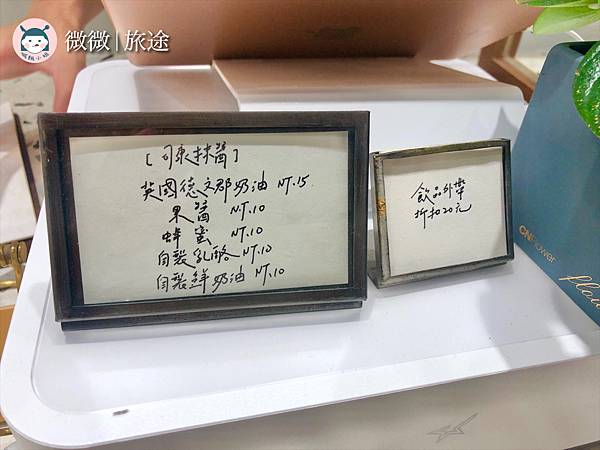 微微|旅途
[司康抹醬]
英國德文郡奶油 NT.15
果醬 NT.10
蜂蜜 NT.10
自製乳酪 NT.10
自製鮮奶油 NT.10
飲品外帶
折扣20元
CNFlower